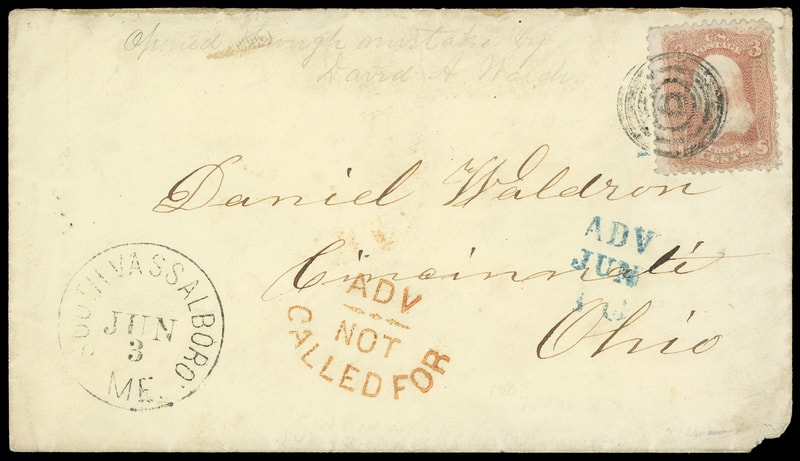 Opened through mistake by
David A Waldron
3 U.S. POSTAGE 3
CENTS
Daniel Waldron
Cincinnati
Ohio
ADV
JUN
SOUTH VASSALBORO'
JUN
3
ME.
ADV
NOT
CALLED FOR